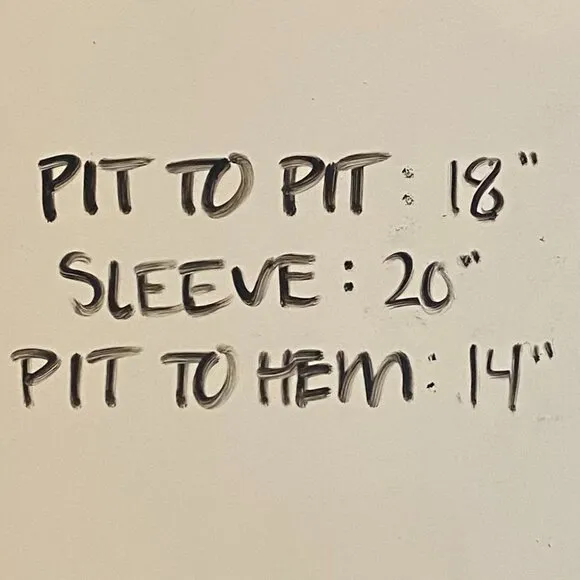 PIT TO PIT: 18"
SLEEVE: 20"
PIT TO HEM: 14"